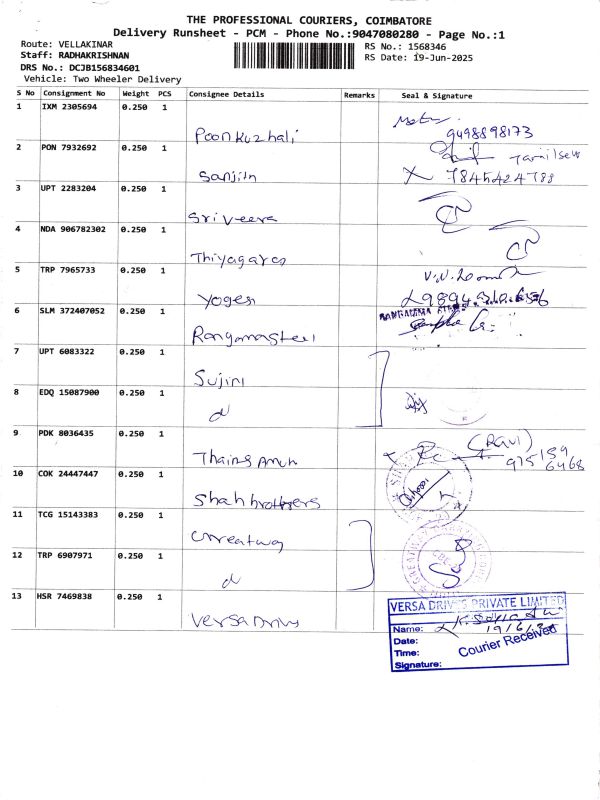 THE PROFESSIONAL COURIERS, COIMBATORE
Delivery Runsheet - PCM - Phone No.:9047080280 - Page No.:1
Route: VELLAKINAR
RS No.: 1568346
Staff: RADHAKRISHNAN
RS Date: 19-Jun-2025
DRS No.: DCJB156834601
Vehicle: Two Wheeler Delivery
S No Consignment No Weight PCS Consignee Details Remarks Seal & Signature
1 IXM 2305694 0.250 1
Poonkuzhali
9498898173
2 PON 7932692 0.250 1
Sanjiln
7845424788
3 UPT 2283204 0.250 1
Sriveera
4 NDA 906782302 0.250 1
Thiyagaraj
5 TRP 7965733 0.250 1
Yogesh
6 SLM 372407052 0.250 1
Rangamasteel
7 UPT 6083322 0.250 1
Sujini
8 EDQ 15087900 0.250 1
d
9 PDK 8036435 0.250 1
(Ravi)
975159
6468
10 COK 24447447 0.250 1
Shahbrothers
11 TCG 15143383 0.250 1
12 TRP 6907971 0.250 1
d
13 HSR 7469838 0.250 1
Versa Drivs
VERSA DRIVES PRIVATE LIMITED
Name:
Date:
Time:
Signature:
Courier Received